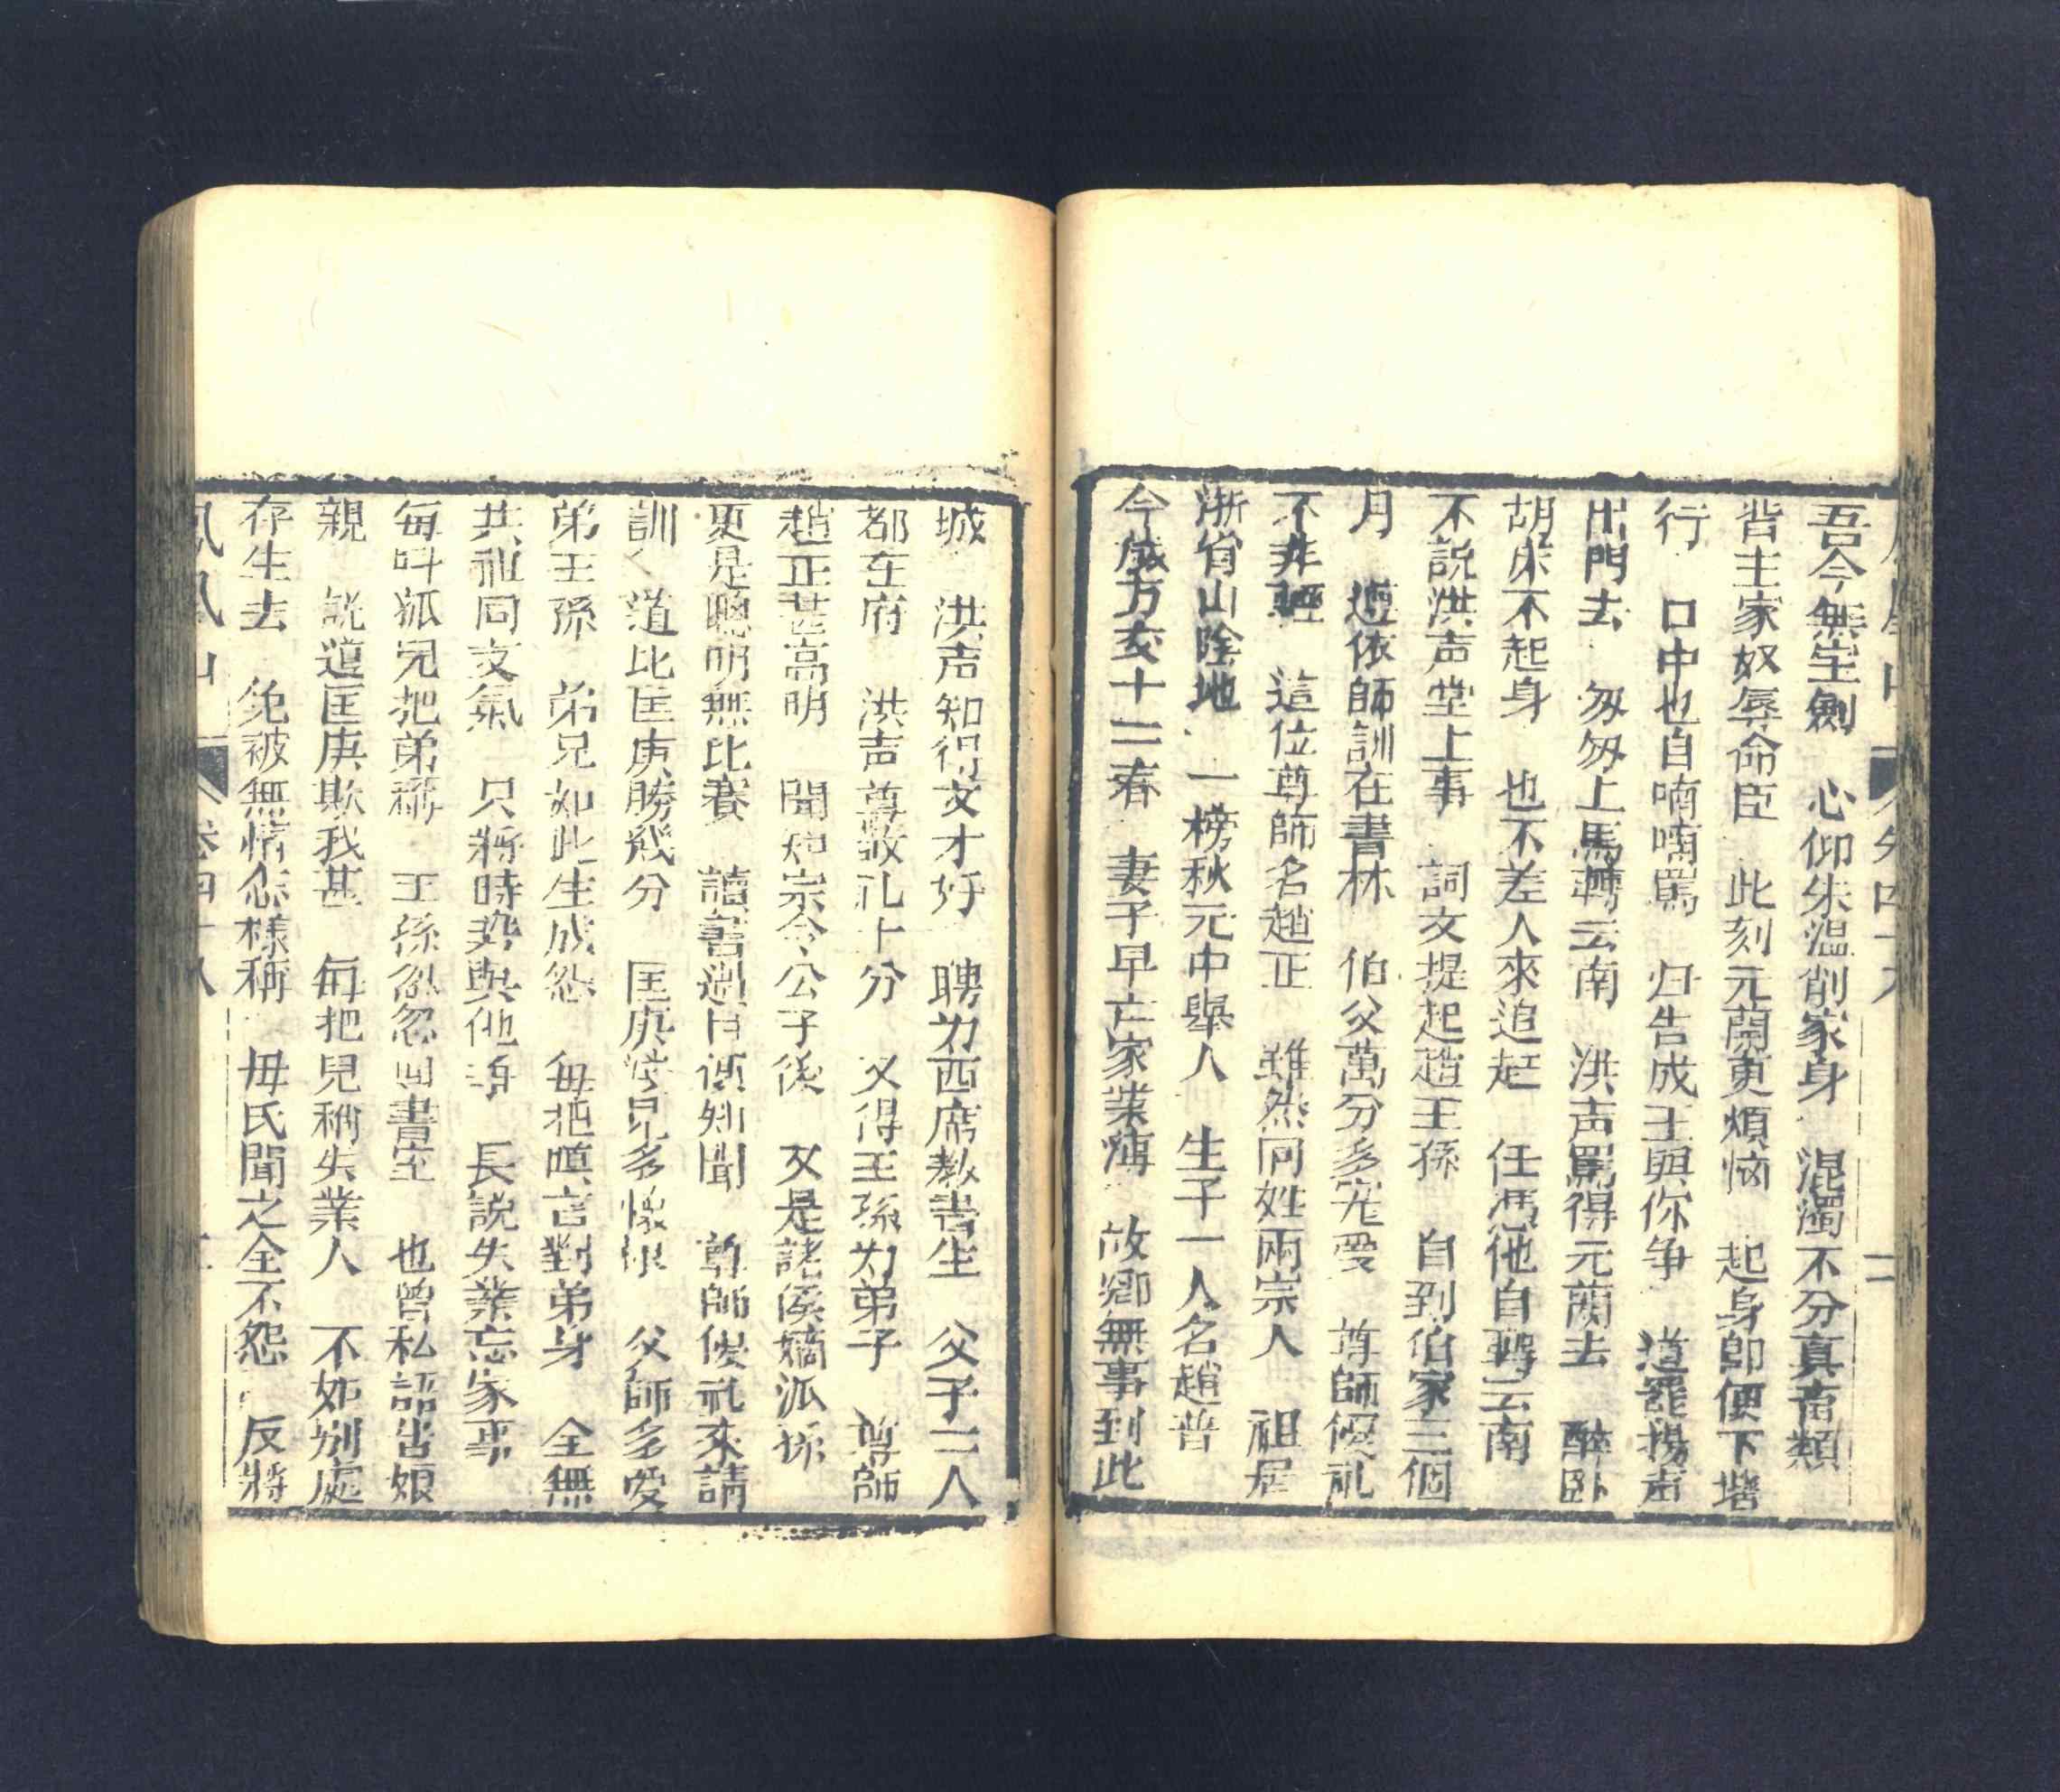 吾今無宝劍 心仰朱温削家身 混濁不分真畜類
背主家奴辱命臣 此刻元蘭更煩惱 起身即便下堦
行 口中也自喃喃罵 归告成王與你争 道罷揚声
出門去 匆匆上馬轉云南 洪声罵得元蘭去 醉卧
胡床不起身 也不差人來追赶 任馮他自轉云南
不説洪声堂上事 詞文提起趙王孫 自到伯家三個
月 遵依師訓在書林 伯父萬分多宠愛 尊師優礼
不非輕 這位尊師名趙正 雖然同姓兩宗人 祖居
浙省山陰地 一榜秋元中舉人 生子一人名趙普
今歲方交十二春 妻子早亡家業薄 故鄉無事到此
城 洪声知得文才好 聘为西席教書生 父子二人
都在府 洪声尊敬礼十分 又得王孫为弟子 尊師
趙正甚高明 聞知宗令公子後 又是諸侯嫡派孫
更是聰明無比賽 讀書過目便知聞 尊師優礼來請
訓く 道比匡庚勝幾分 匡庚聞見多懷恨 父師多愛
弟王孫 弟兄如此生成怨 每把嗔言對弟身 全無
共祖同支氣 只將時势與他爭 長説失業忘家事
每呌孤兒把弟稱 王孫忍忍回書室 也曾私語告娘
親 説道匡庚欺我甚 每把兒稱失業人 不如别處
存生去 免被無情怎樣稱 母氏聞之全不怨 反將
鳳凰山 卷四十八